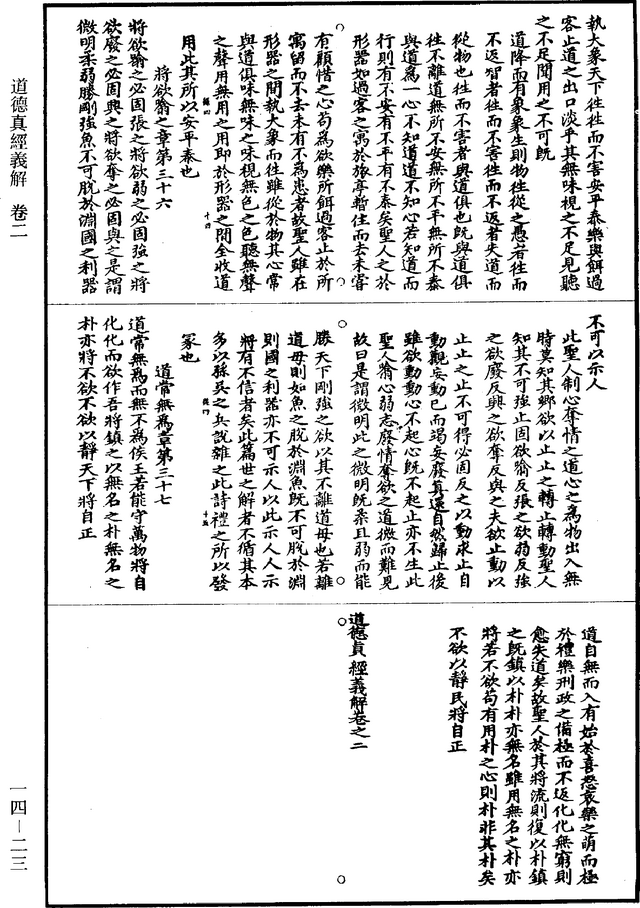 道德真經義解 卷二
一四—二三
執大象天下往往而不害安平泰樂與餌過
客止道之出口淡乎其無味視之不足見聽
之不足聞用之不可既
道降而有象象生則物往從之愚者往而
不返智者往而不害往而不返者失道而
從物也往而不害者與道俱也既與道俱
往不離道無所不安無所不平無所不泰
與道為一心不知道道不知心若知道而
行則有不安有不平有不泰矣聖人之於
形器如過客之寓於旅亭暫住而去未嘗
有顧惜之心苟為欲樂所餌過客止於所
寓留而不去未有不為患者故聖人雖在
形器之間執大象而往雖從於物其心常
與道俱味無味之味視無色之色聽無聲
之聲用無用之用即於形器之間全收道
用此其所以安平泰也
將欲歙之章第三十六
將欲歙之必固張之將欲弱之必固強之將
欲廢之必固興之將欲奪之必固與之是謂
微明柔弱勝剛強魚不可脫於淵國之利器
不可以示人
此聖人制心奪情之道心之為物出入無
時莫知其鄉欲以止止之轉止轉動聖人
知其不可強止固欲歙反張之欲弱反強
之欲廢反興之欲奪反與之夫欲止動以
止止之止不可得必固反之以動求止自
動觀妄動已而竭妄廢真還自然歸止後
雖欲動動心不起心既不起止亦不生此
聖人歙心弱志廢情奪欲之道微而難見
故曰是謂微明此之微明既柔且弱而能
勝天下剛強之欲以其不離道母也若離
道母則如魚之脫於淵魚既不可脫於淵
則國之利器亦不可示人以此示人人示
將有不信者矣此篇世之解者不循其本
多以孫吳之兵說雜之此詩禮之所以發
冢也
道常無為章第三十七
道常無為而無不為侯王若能守萬物將自
化化而欲作吾將鎮之以無名之朴無名之
朴亦將不欲不欲以靜天下將自正
道自無而入有始於喜怒哀樂之萌而極
於禮樂刑政之備極而不返化化無窮則
愈失道矣故聖人於其將流則復以朴鎮
之既鎮以朴朴亦無名雖用無名之朴亦
將若不欲苟有用朴之心則朴非其朴矣
不欲以靜民將自正
道德真經義解卷之二